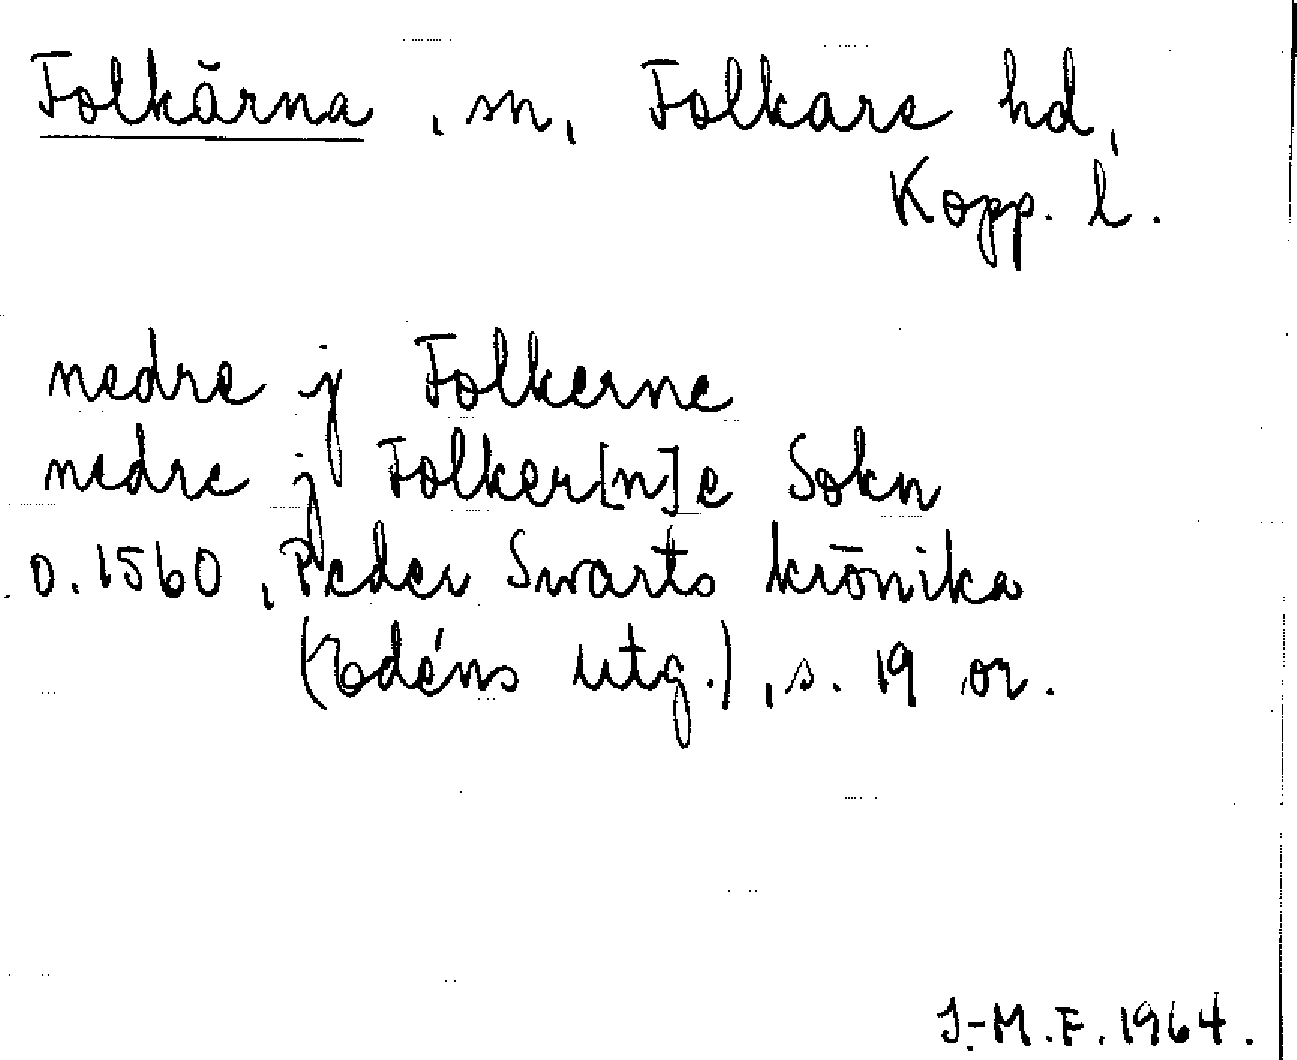 Folkärna, sn, Folkare hd,
Kopp. l.
nedre j Folkerne
nedre j Folker[n]e Sokn
o. 1560, Peder Swarts krönika
(Edéns utg.), s. 19 or.
J.-M.F. 1964.